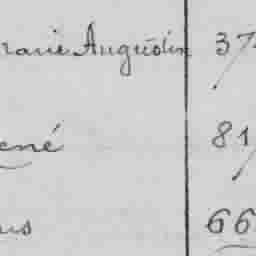 Marie Augustin 37
ené 81
us 66